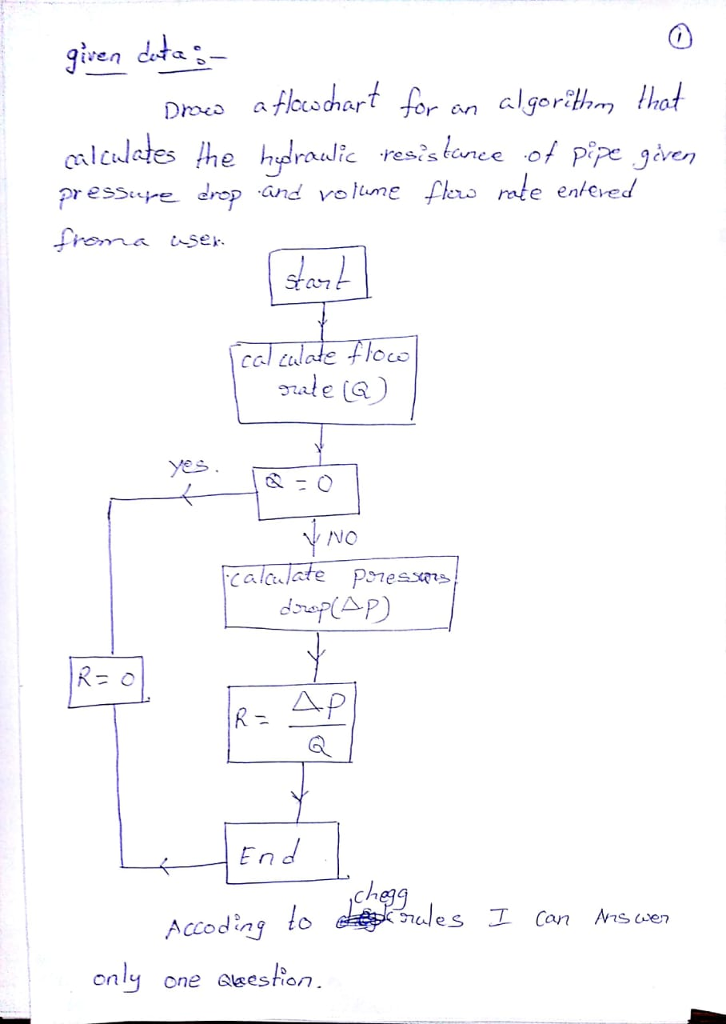 1
given data :-
Draw a flowchart for an algorithm that
calculates the hydraulic resistance of pipe given
pressure drop and volume flow rate entered
from a user.
start
calculate flow
rate (Q)
yes.
Q = 0
NO
calculate pressure
drop (ΔP)
R = 0
R = ΔP
Q
End
chegg
Accoding to rules I can Answer
only one Question.